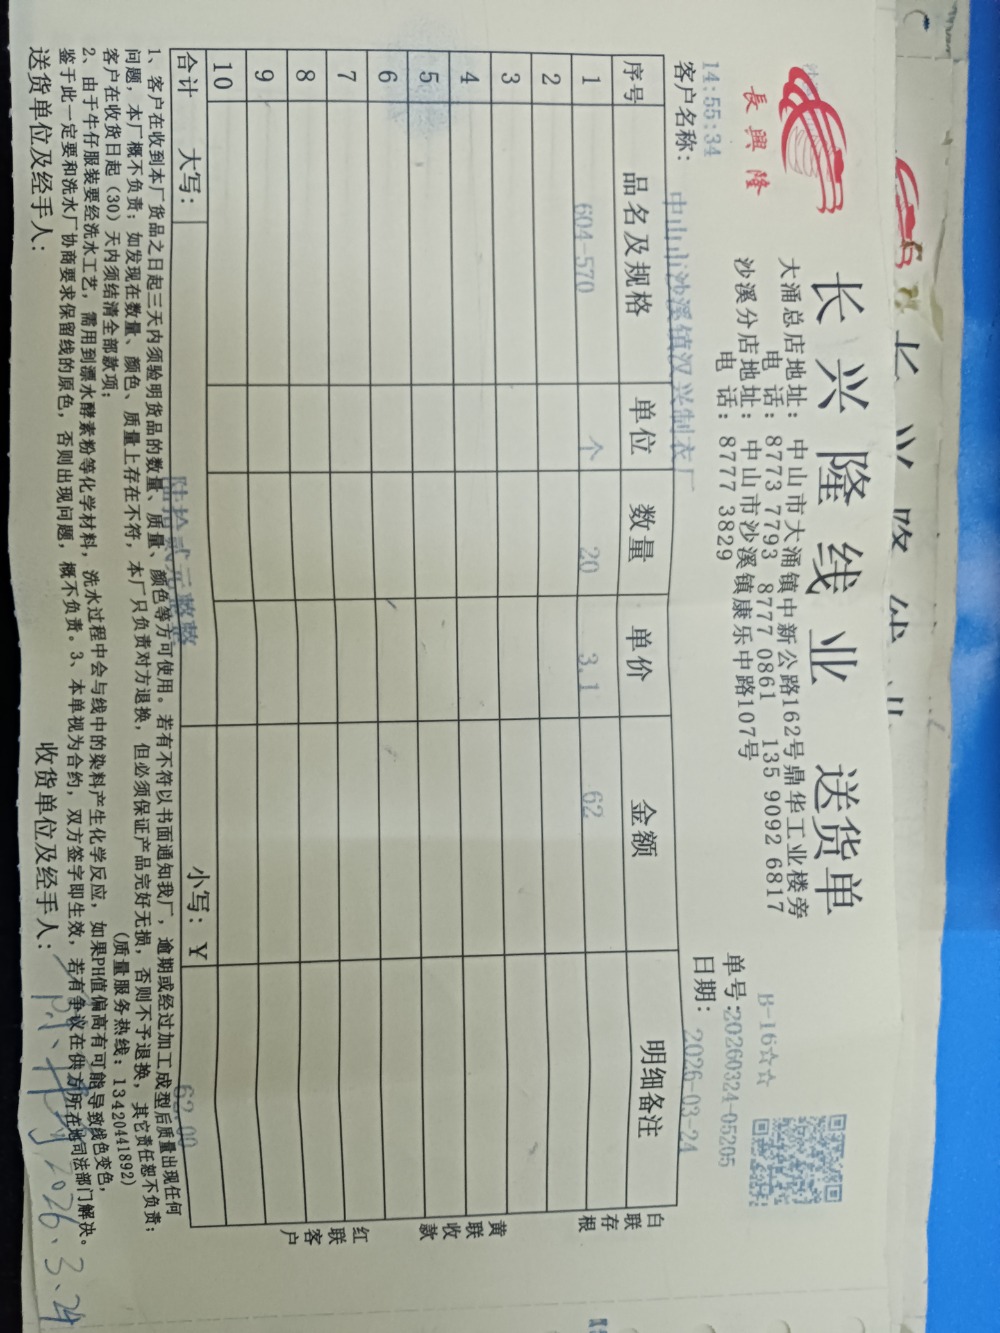 长兴隆线业 送货单
長興隆
大涌总店地址：中山市大涌镇中新公路162号鼎华工业楼旁
电 话：8773 7793 8777 0861 135 9092 6817
沙溪分店地址：中山市沙溪镇康乐中路107号
电 话：8777 3829
B-16☆☆
单号:20260324-05205
14:55:34
日期：2026-03-24
客户名称：中山市沙溪镇汉兴制衣厂
序号 品名及规格 单位 数量 单价 金额 明细备注
1 604-570 个 20 3.1 62
2
3
4
5
6
7
8
9
10
合计 大写：陆拾贰元整 小写：¥ 62.00
白联存根
黄联收款
红联客户
1、客户在收到本厂货品之日起三天内须验明货品的数量、质量、颜色等方可使用。若有不符以书面通知我厂，逾期或经过加工成型后质量出现任何
问题，本厂概不负责；如发现在数量、颜色、质量上存在不符，本厂只负责对方退换，但必须保证产品完好无损，否则不予退换，其它责任恕不负责；
客户在收货日起（30）天内须结清全部款项； (质量服务热线：13420441892)
2、由于牛仔服装要经洗水工艺，需用到漂水酵素粉等化学材料，洗水过程中会与线中的染料产生化学反应，如果PH值偏高有可能导致线色变色，
鉴于此一定要和洗水厂协商要求保留线的原色，否则出现问题，概不负责。3、本单视为合约，双方签字即生效，若有争议在供方所在地司法部门解决。
送货单位及经手人： 收货单位及经手人： 2026.3.24
长兴隆线业